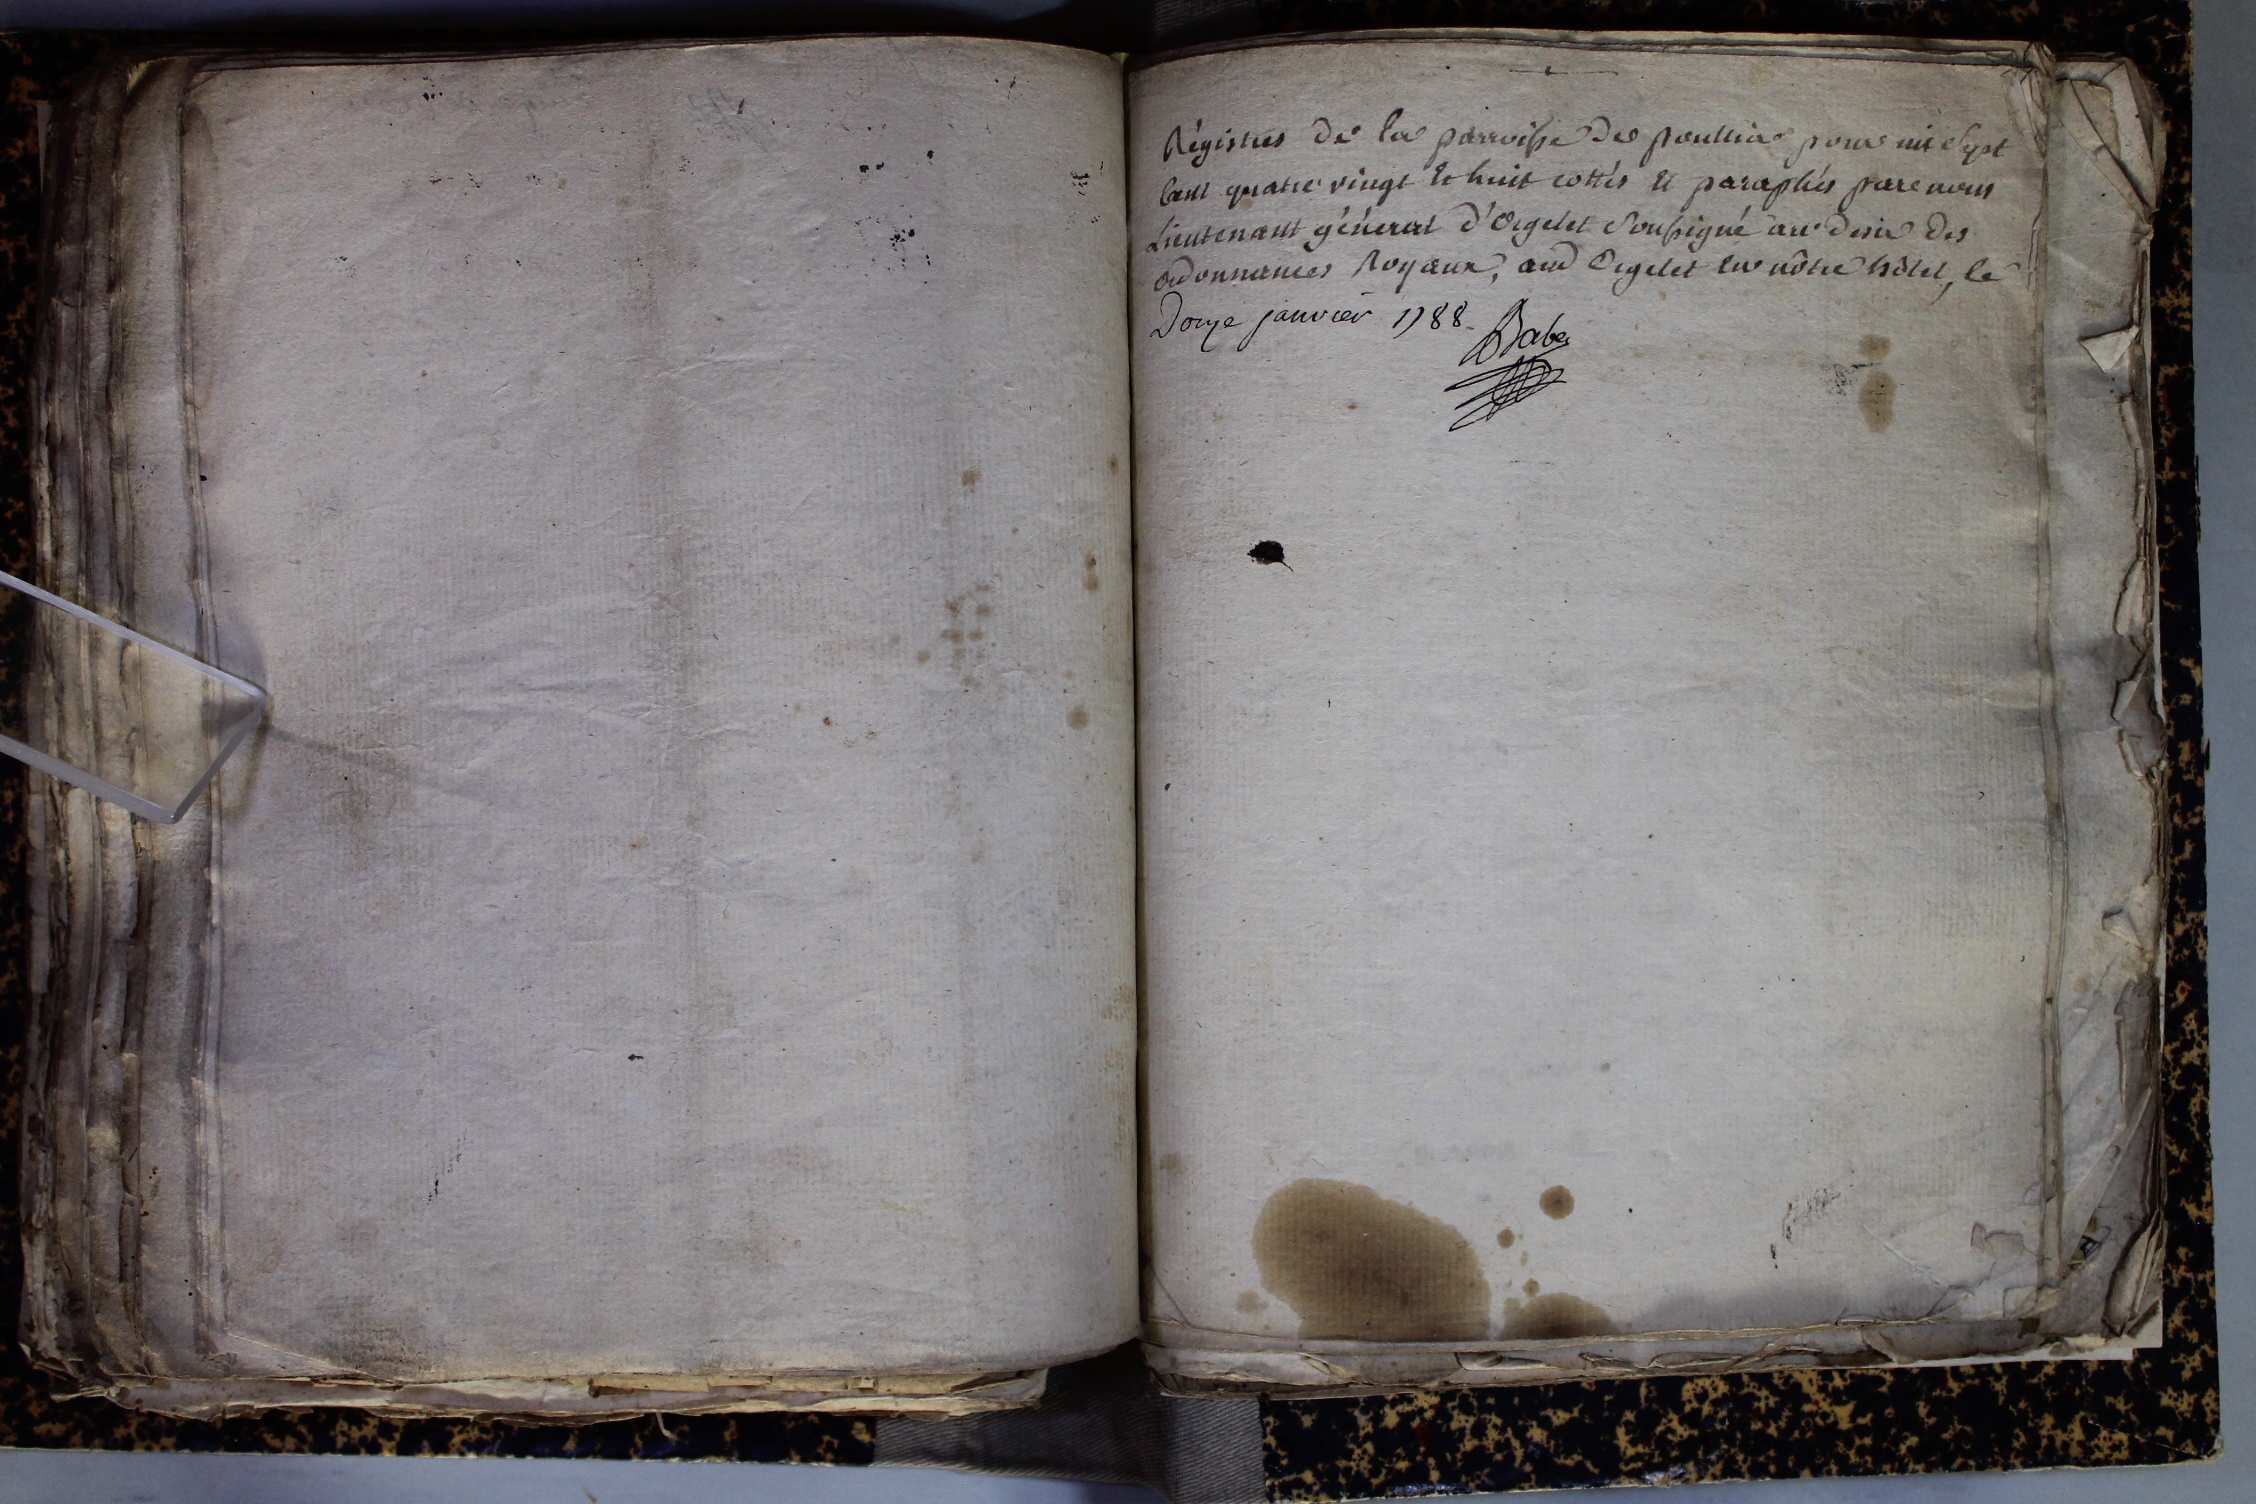 Régistres de la parroisse de poullia pour mil sept
Cent quatre vingt et huit cottés et paraphés par nous
Lieutenant général d'Orgelet soussigné au desir des
ordonnances Royaux, aud Orgelet en nôtre hôtel, le
Douze janvier 1788
Babey